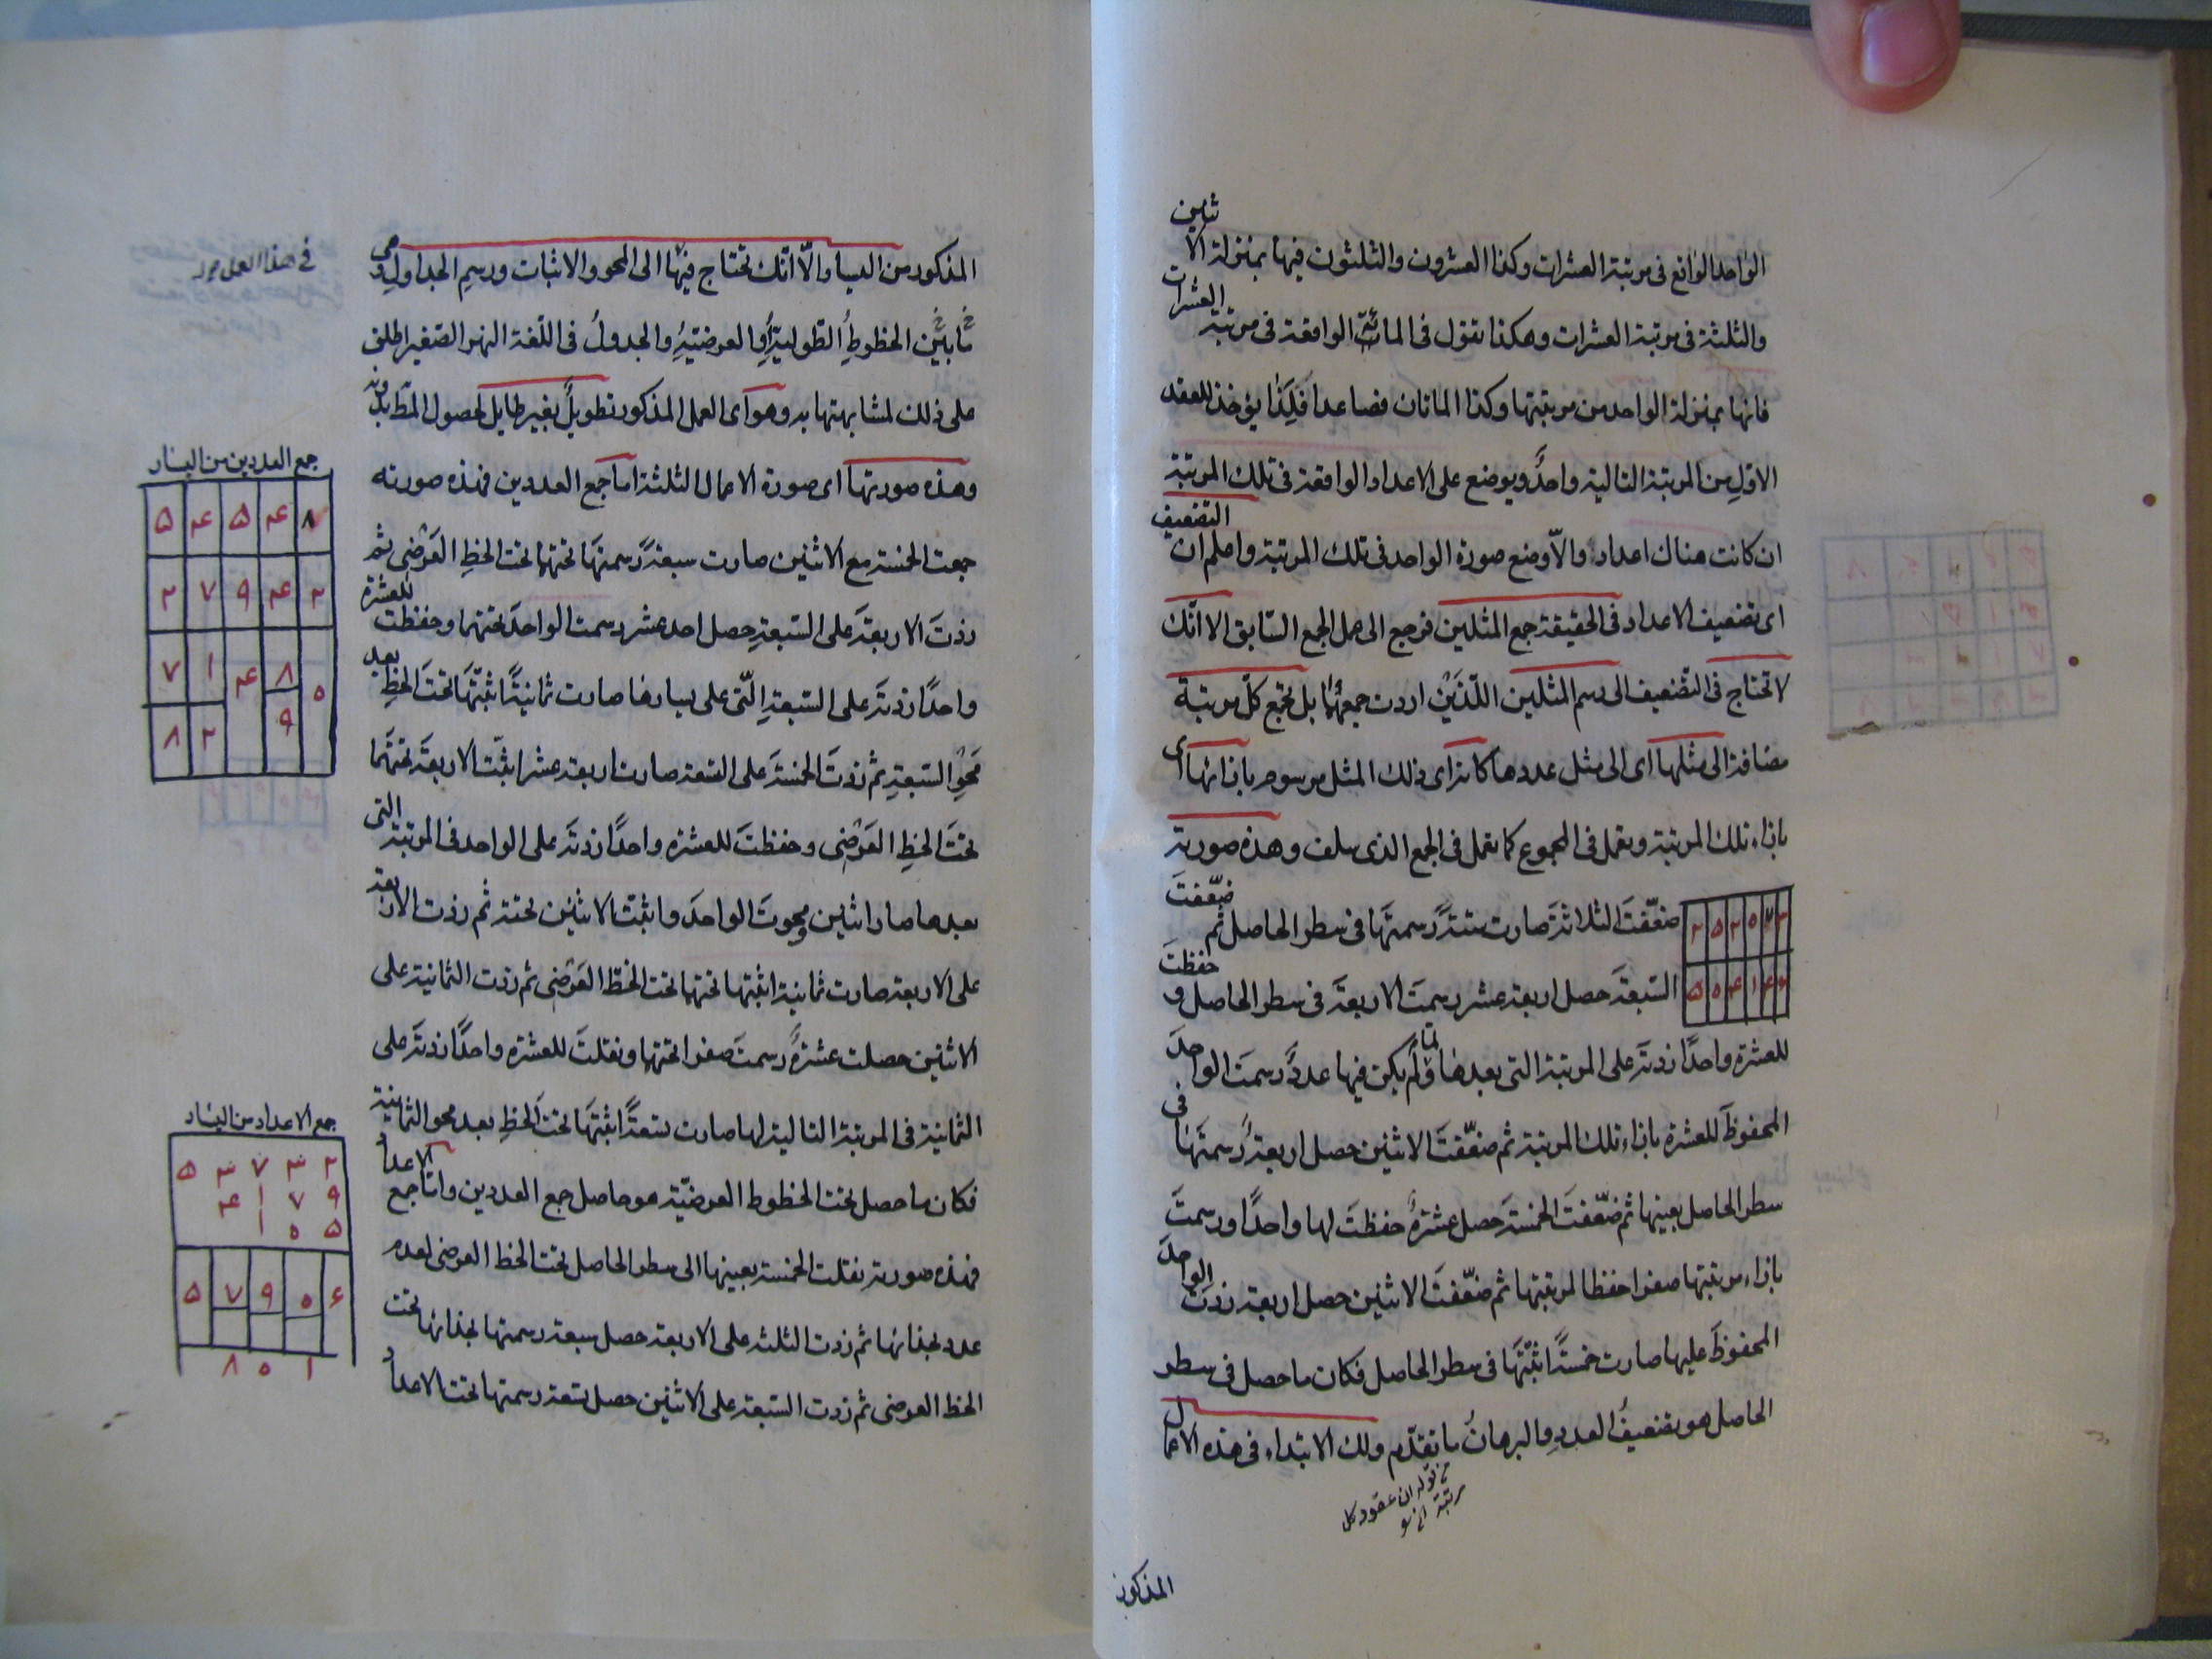 الواحد الواقع فى مرتبة العشرات وكذا العشرون والثلثون فيها بمنزلة الاثنين
والثلثة فى مرتبة العشرات وهكذا تقول فى المائة الواقعة فى مرتبة العشرات
فانها بمنزلة الواحد من مرتبتها وكذا الماتان فصاعدا فلذا يؤخذ للعقد
الاول من المرتبة التالية واحد ويوضع على الاعداد الواقعة فى تلك المرتبة
ان كانت هناك اعداد والا وضع صورة الواحد فى تلك المرتبة واعلم ان التضعيف
اى تضعيف الاعداد فى الحقيقة جمع المثلين فرجع الى عمل الجمع السابق الا انّك
لا تحتاج فى التضعيف الى رسم المثلين اللذين اردت جمعهما بل تجمع كلّ مرتبة
مضافة الى مثلها اى الى مثل عددها كانه اى ذلك المثل مرسوم بازائها اى
بازاء تلك المرتبة وتعمل فى المجموع كما تعمل فى الجمع الذى سلف وهذه صورته
ضعّفتَ الثلاثةَ صارت ستةً رسمتَها فى سطر الحاصل ثم ضعّفتَ
السبعةَ حصل اربعة عشر رسمتَ الاربعةَ فى سطر الحاصل و حفظتَ
للعشرة واحدًا زدتَه على المرتبة التى بعدها ولمّا لم يكن فيها عددٌ رسمتَ الواحدَ
المحفوظَ للعشرة بازاء تلك المرتبة ثم ضعّفتَ الاثنين حصل اربعةٌ رسمتَها فى
سطر الحاصل بعينها ثم ضعّفتَ الخمسةَ حصل عشرةٌ حفظتَ لها واحدًا ورسمتَ
بازاء مرتبتها صفرا حفظا لمرتبتها ثم ضعّفتَ الاثنين حصل اربعة زدتَ الواحدَ
المحفوظَ عليها صارت خمسةً اثبتّها فى سطر الحاصل فكان ما حصل فى سطر
الحاصل هو تضعيفُ العددِ والبرهانُ ما تقدّم ولك الابتداء فى هذه الاعمال
من قوله ان عقود كل
مرتبة
المذكورة
المذكورة من اليسار الّا انّك تحتاج فيها الى المحو والاثبات ورسمِ الجداولِ وهى
ما بين الخطوطِ الطوليةِ والعرضيّةِ والجدولُ فى اللّغة النهر الصّغير اطلق
على ذلك لمشابهتها به وهو اى العمل المذكور تطويلٌ بغير طايل لحصول المط بدونه
وهذه صورتها اى صورة الاعمال الثلثة اما جمع العددين فهذه صورته
جمعت الخمسة مع الاثنين صارت سبعةً رسمتها تحتها تحت الخطِ العَرْضى ثم
زدتَ الاربعةَ على السّبعةِ حصل احد عشر رسمت الواحدَ تحتهما وحفظت للعشرة
واحدًا زدتَه على السّبعةِ الّتى على يسارها صارت ثمانيةً اثبتّها تحتَ الخطِ بعد
محوِ السّبعةِ ثم زدتَ الخمسةَ على التسعة صارت اربعة عشر اثبتّ الاربعةَ تحتهما
تحتَ الخطِ العَرْضى وحفظتَ للعشرة واحدًا زدتَه على الواحد فى المرتبة التى
بعدها صار اثنين ومحوتَ الواحدَ واثبتّ الاثنين تحته ثم زدت الاربعة
على الاربعة صارت ثمانية اثبتّها تحتها تحت الخطّ العَرْضى ثم زدت الثمانية على
الاثنين حصلت عشرةٌ رسمتَ صفرا تحتها ونقلتَ للعشرة واحدًا زدتَه على
الثمانية فى المرتبة التالية لها صارت تسعةً اثبتّها تحتَ الخطِ بعد محو الثمانية
فكان ما حصل تحت الخطوط العرضيّة هو حاصل جمع العددين وامّا جمع الاعداد
فهذه صورته نقلت الخمسة بعينها الى سطر الحاصل تحت الخط العرضى لعدم
عدد بحذائها ثم زدت الثلثة على الاربعة حصل سبعة رسمتها بحذائها تحت
الخط العرضى ثم زدت السّبعة على الاثنين حصل تسعة رسمتها تحت الاعداد
فى هذا العمل
جمع العددين من اليسار
۵ ۴ ۵ ۴ ۸
۲ ۷ ۹ ۴ ۲
۷ ۱ ۴ ۸ ۰
۸ ۲ ۹
جمع الاعداد من اليسار
۵ ۳ ۷ ۳ ۲
۴ ۱ ۷ ۹
۱ ۰ ۵
۵ ۷ ۹ ۰ ۶
۸ ۰ ۱